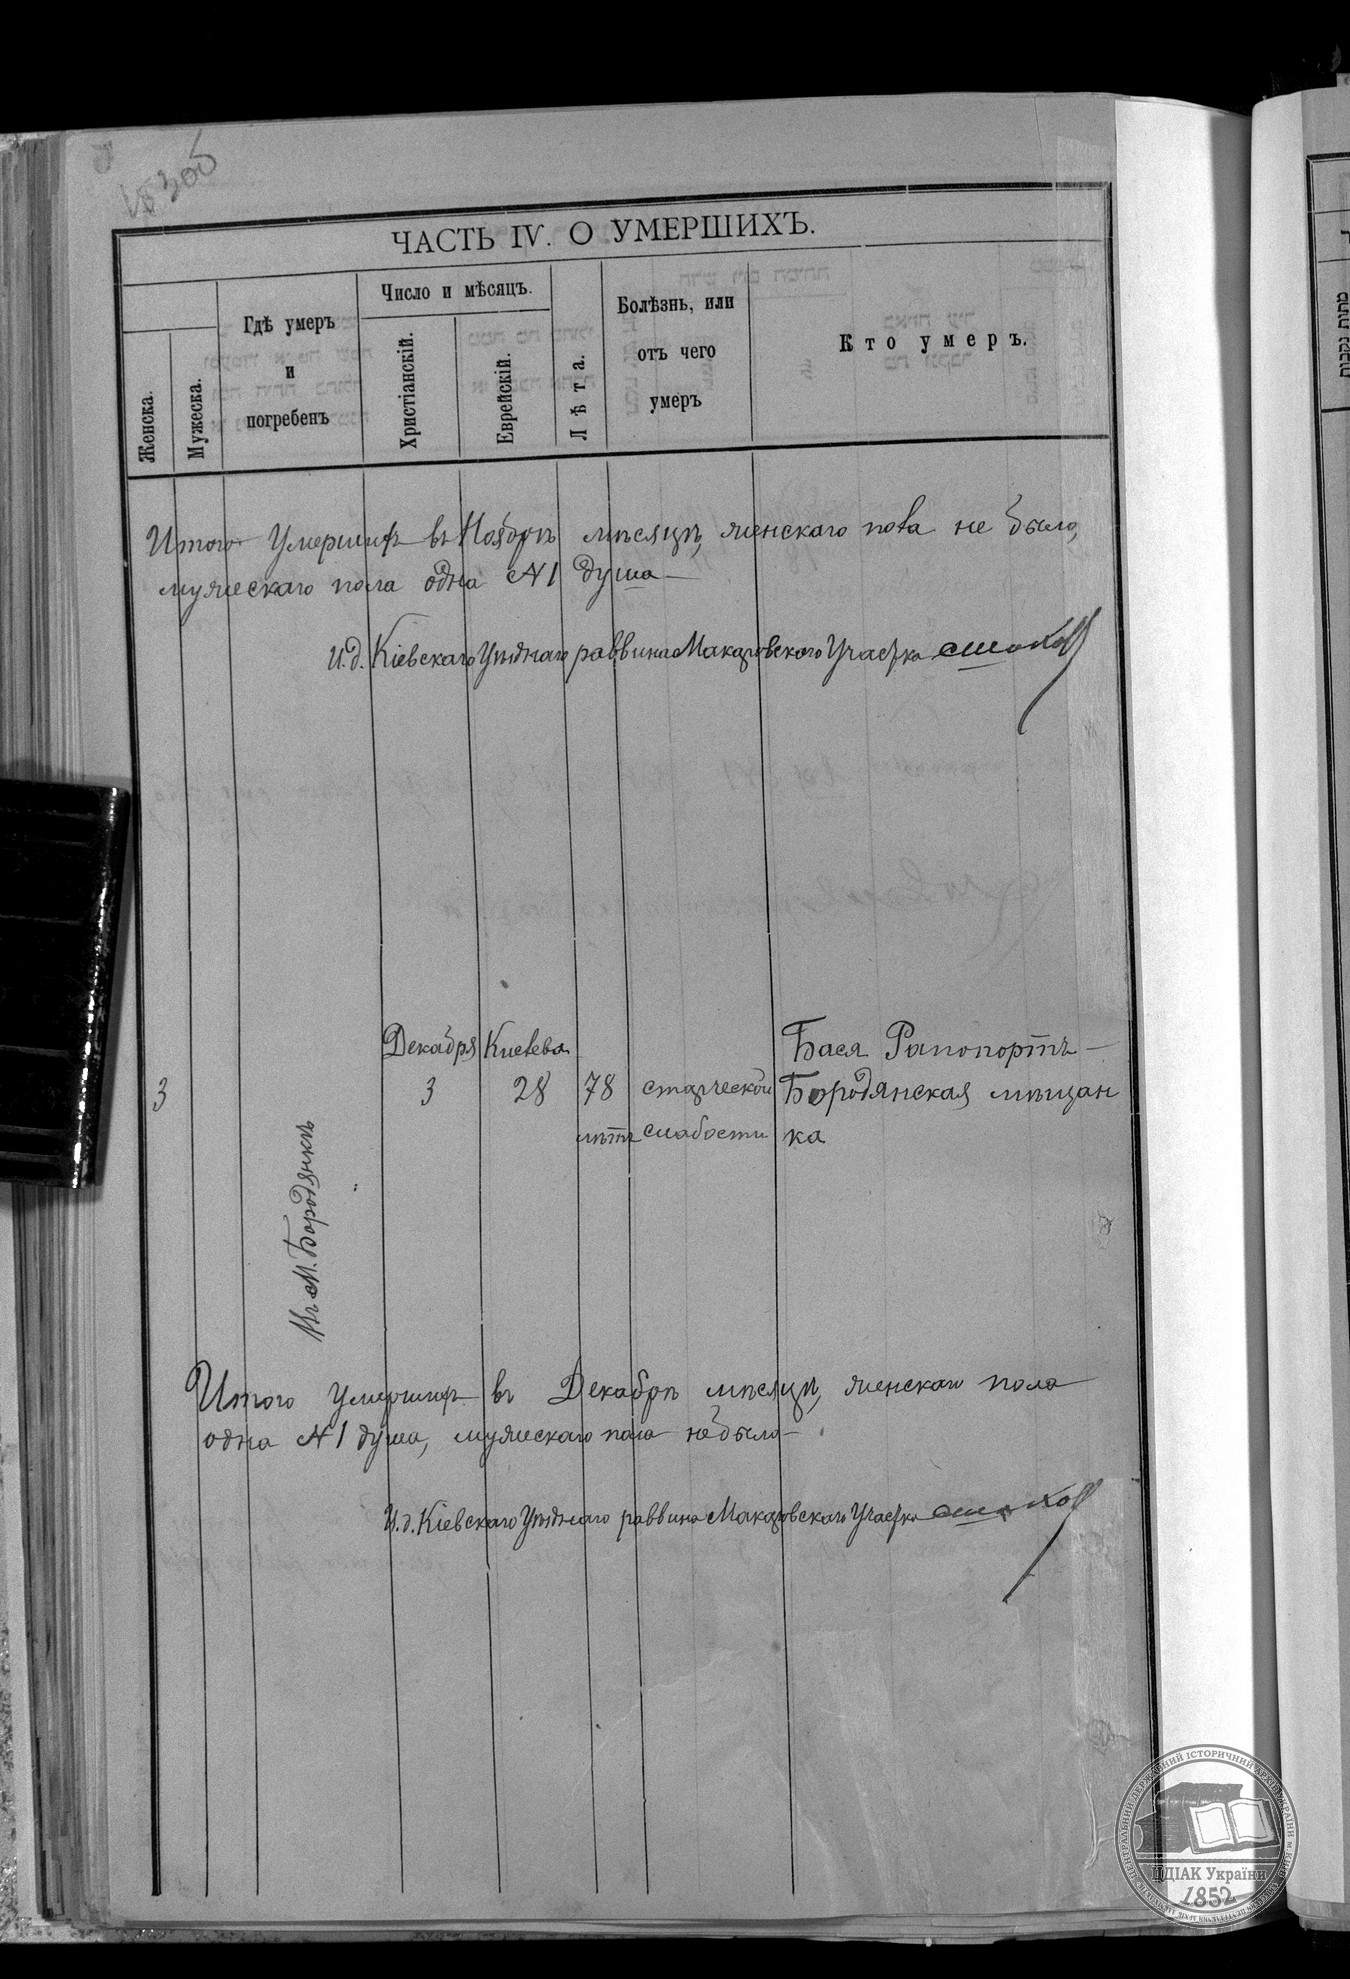 306
ЧАСТЬ IV. О УМЕРШИХЪ.
Женска.
Мужеска.
Гдѣ умеръ
и
погребенъ
Число и мѣсяцъ.
Христіанскій.
Еврейскій.
Лѣта.
Болѣзнь, или
отъ чего
умеръ
Кто умеръ.
Итого Умершихъ въ Ноябрѣ мѣсяцѣ, женскаго пола не было,
мужескаго пола одна №1 душа
И.д. Кіевскаго Уѣзднаго раввина Макаровскаго Участка
Декабря Кислева Бася Рапопортъ —
3 3 28 78 старческой Бородянская мѣщан
лѣтъ слабости ка
Въ М. Бородянкѣ
Итого Умершихъ въ Декабрѣ мѣсяцѣ, женскаго пола
одна №1 душа, мужескаго пола небыло
И.д. Кіевскаго Уѣзднаго раввина Макаровскаго Участка
ЦДІАК України
1852